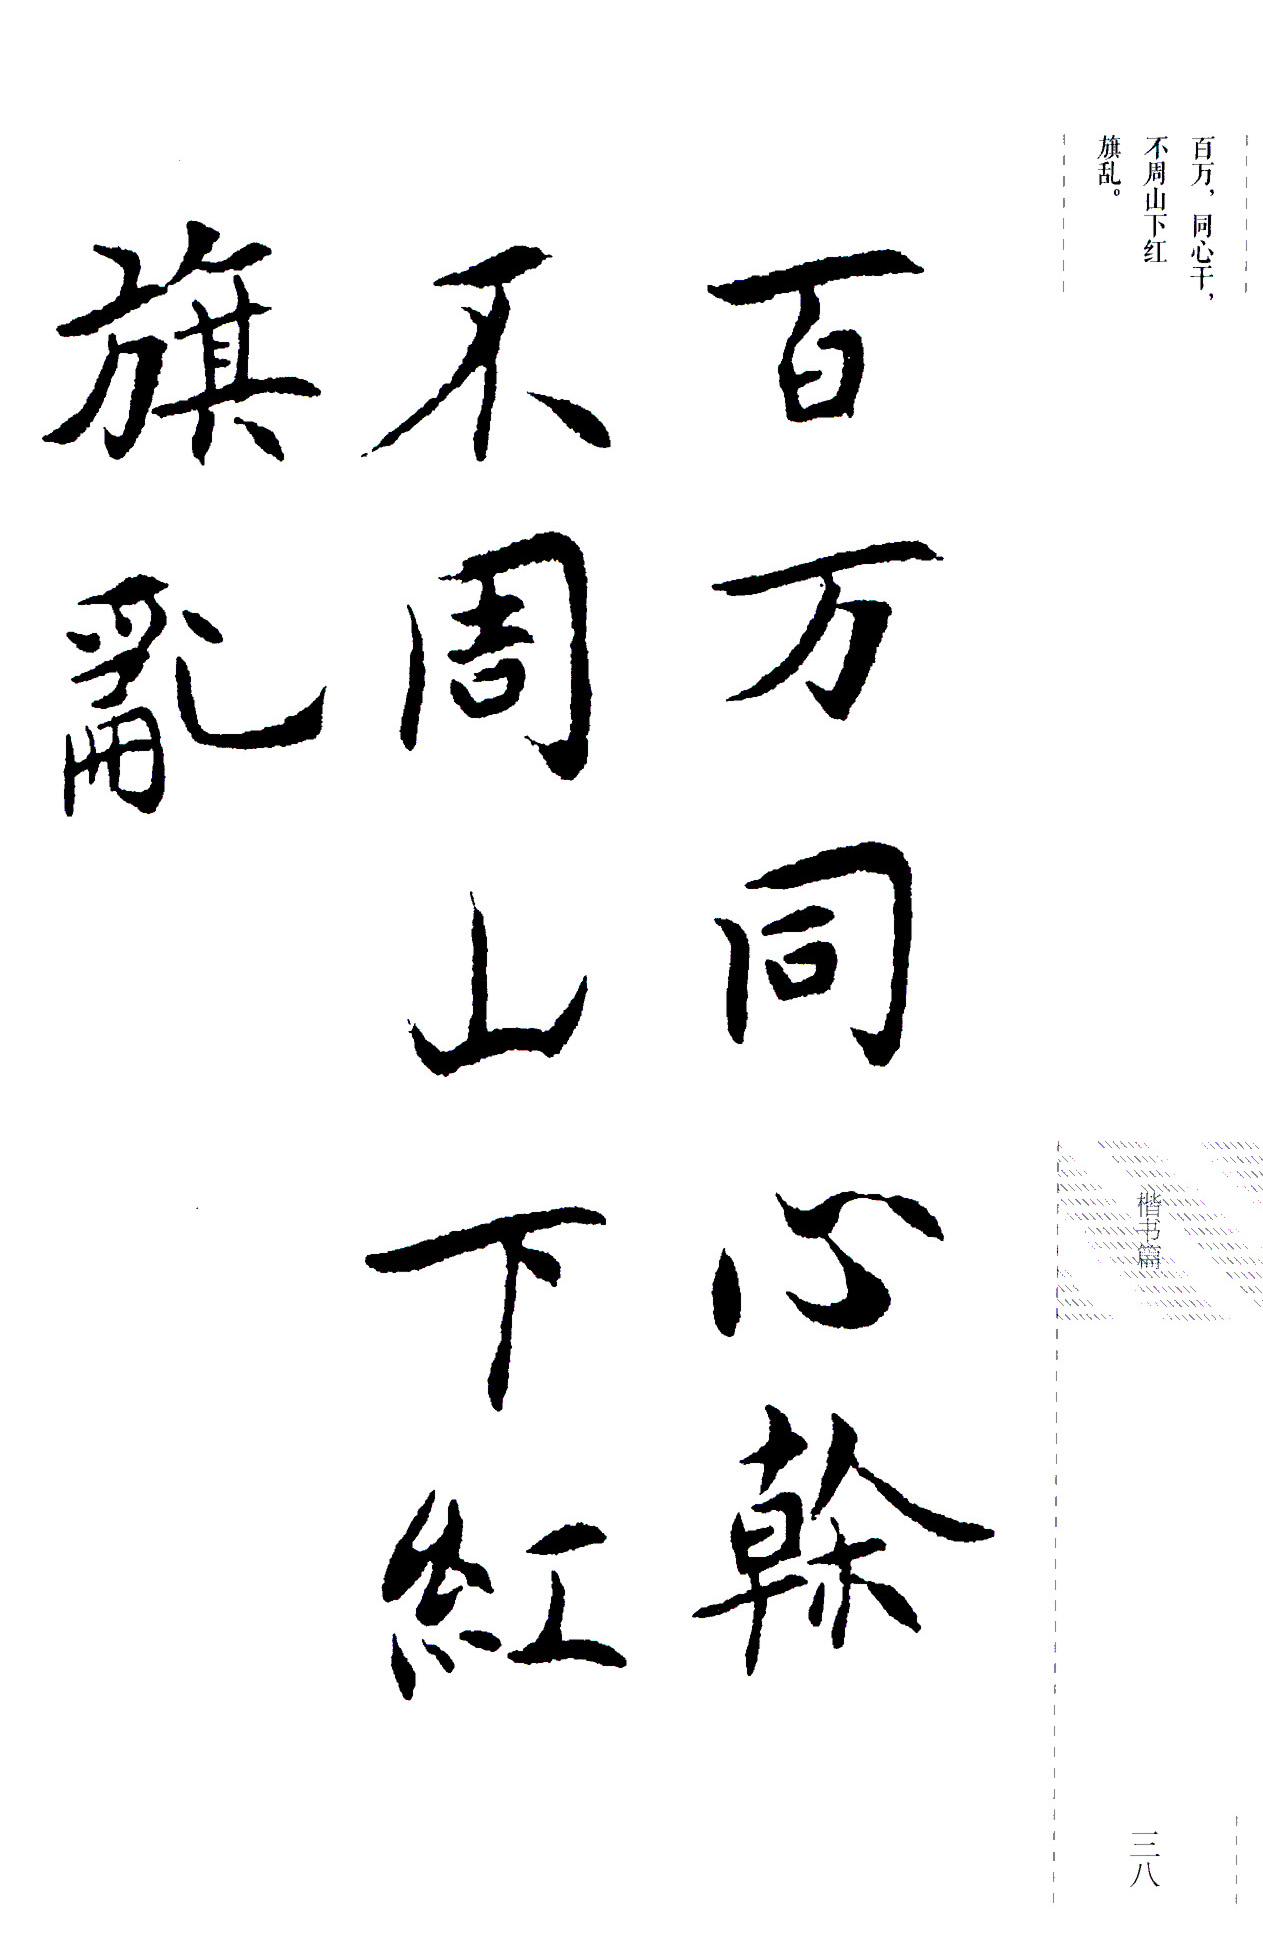 百万，同心干，
不周山下红
旗乱。
楷书篇
三八
百万同心幹
不周山下紅
旗亂